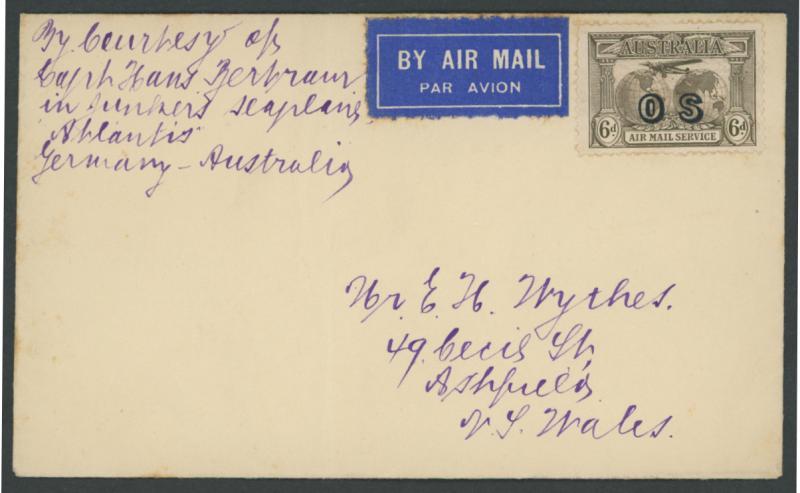 By Courtesy of
Capt Hans Bertram
in Junkers seaplane
Atlantis
Germany - Australia
BY AIR MAIL
PAR AVION
AUSTRALIA
O S
6d AIR MAIL SERVICE 6d
Mr. E. H. Wythes.
49. Cecil St,
Ashfield
N. S. Wales.